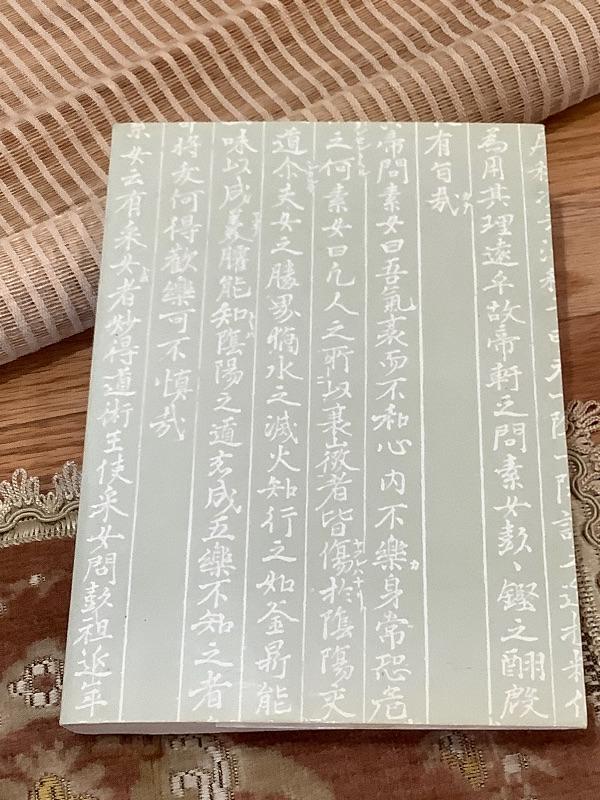 為用其理遠乎故帝軒之問素女彭〻鏗之酬殷
有旨哉
帝問素女曰吾氣衰而不和心内不樂身常恐危
之何素女曰凡人之所以衰微者皆傷於陰陽交
道尒夫女之勝男猶水之滅火知行之如釜鼎能
味以成羹臛能知陰陽之道玄成五樂不知之者
将夭何得歡樂可不慎哉
素女云有采女者妙得道術王使采女問彭祖延年